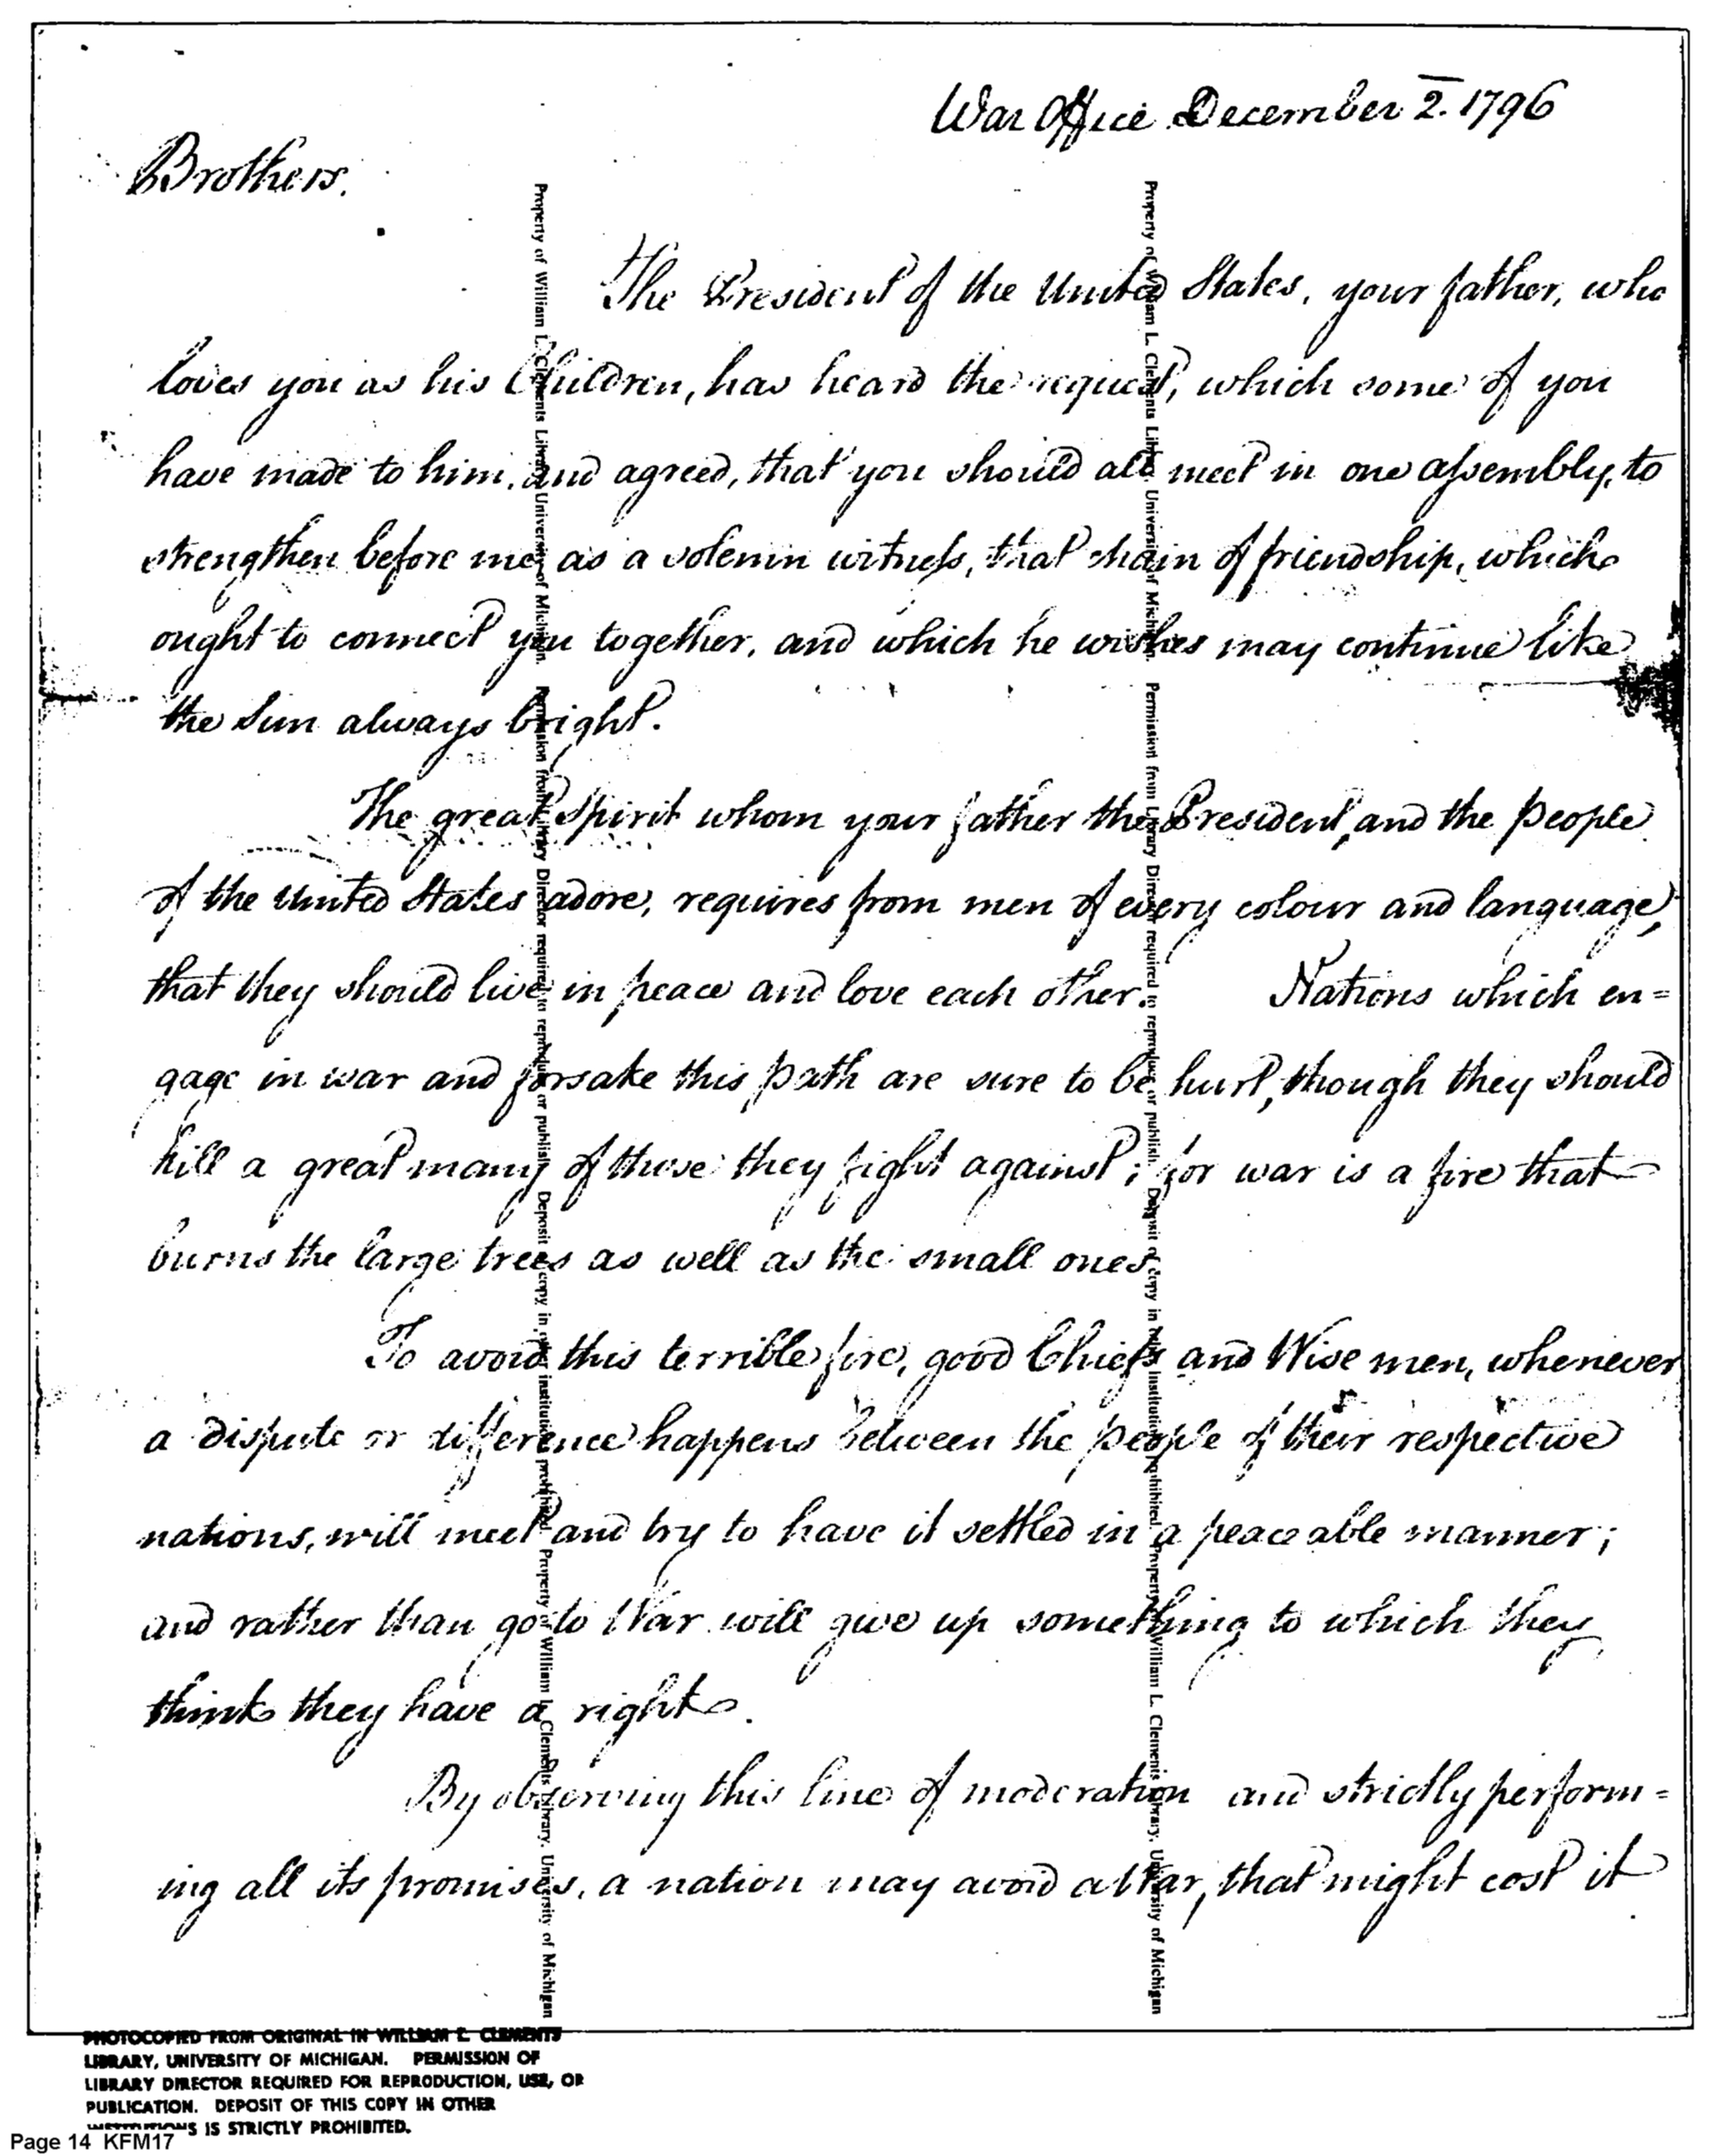 War Office December 2. 1796
Brothers.
The President of the United States, your father, who
loves you as his Children, has heard the request, which some of you
have made to him, and agreed, that you should all meet in one assembly, to
strengthen before me, as a solemn witness, that chain of friendship, which
ought to connect you together, and which he wishes may continue like
the Sun always bright.
The great Spirit whom your father the President, and the People
of the United States adore, requires from men of every colour and language,
that they should live in peace and love each other. Nations which en=
gage in war and forsake this path are sure to be hurt, though they should
kill a great many of those they fight against; for war is a fire that
burns the large trees as well as the small ones.
To avoid this terrible fire, good Chiefs and Wise men, whenever
a dispute or difference happens between the people of their respective
nations, will meet and try to have it settled in a peaceable manner;
and rather than go to War will give up something to which they
think they have a right.
By observing this line of moderation and strictly perform=
ing all its promises, a nation may avoid a War, that might cost it
Property of William L. Clements Library, University of Michigan. Permission from Library Director required to reproduce or publish. Deposit of copy in other institution prohibited. Property of William L. Clements Library, University of Michigan
Property of William L. Clements Library, University of Michigan. Permission from Library Director required to reproduce or publish. Deposit of copy in other institution prohibited. Property of William L. Clements Library, University of Michigan
PHOTOCOPIED FROM ORIGINAL IN WILLIAM L. CLEMENTS
LIBRARY, UNIVERSITY OF MICHIGAN. PERMISSION OF
LIBRARY DIRECTOR REQUIRED FOR REPRODUCTION, USE, OR
PUBLICATION. DEPOSIT OF THIS COPY IN OTHER
INSTITUTIONS IS STRICTLY PROHIBITED.
Page 14 KFM17